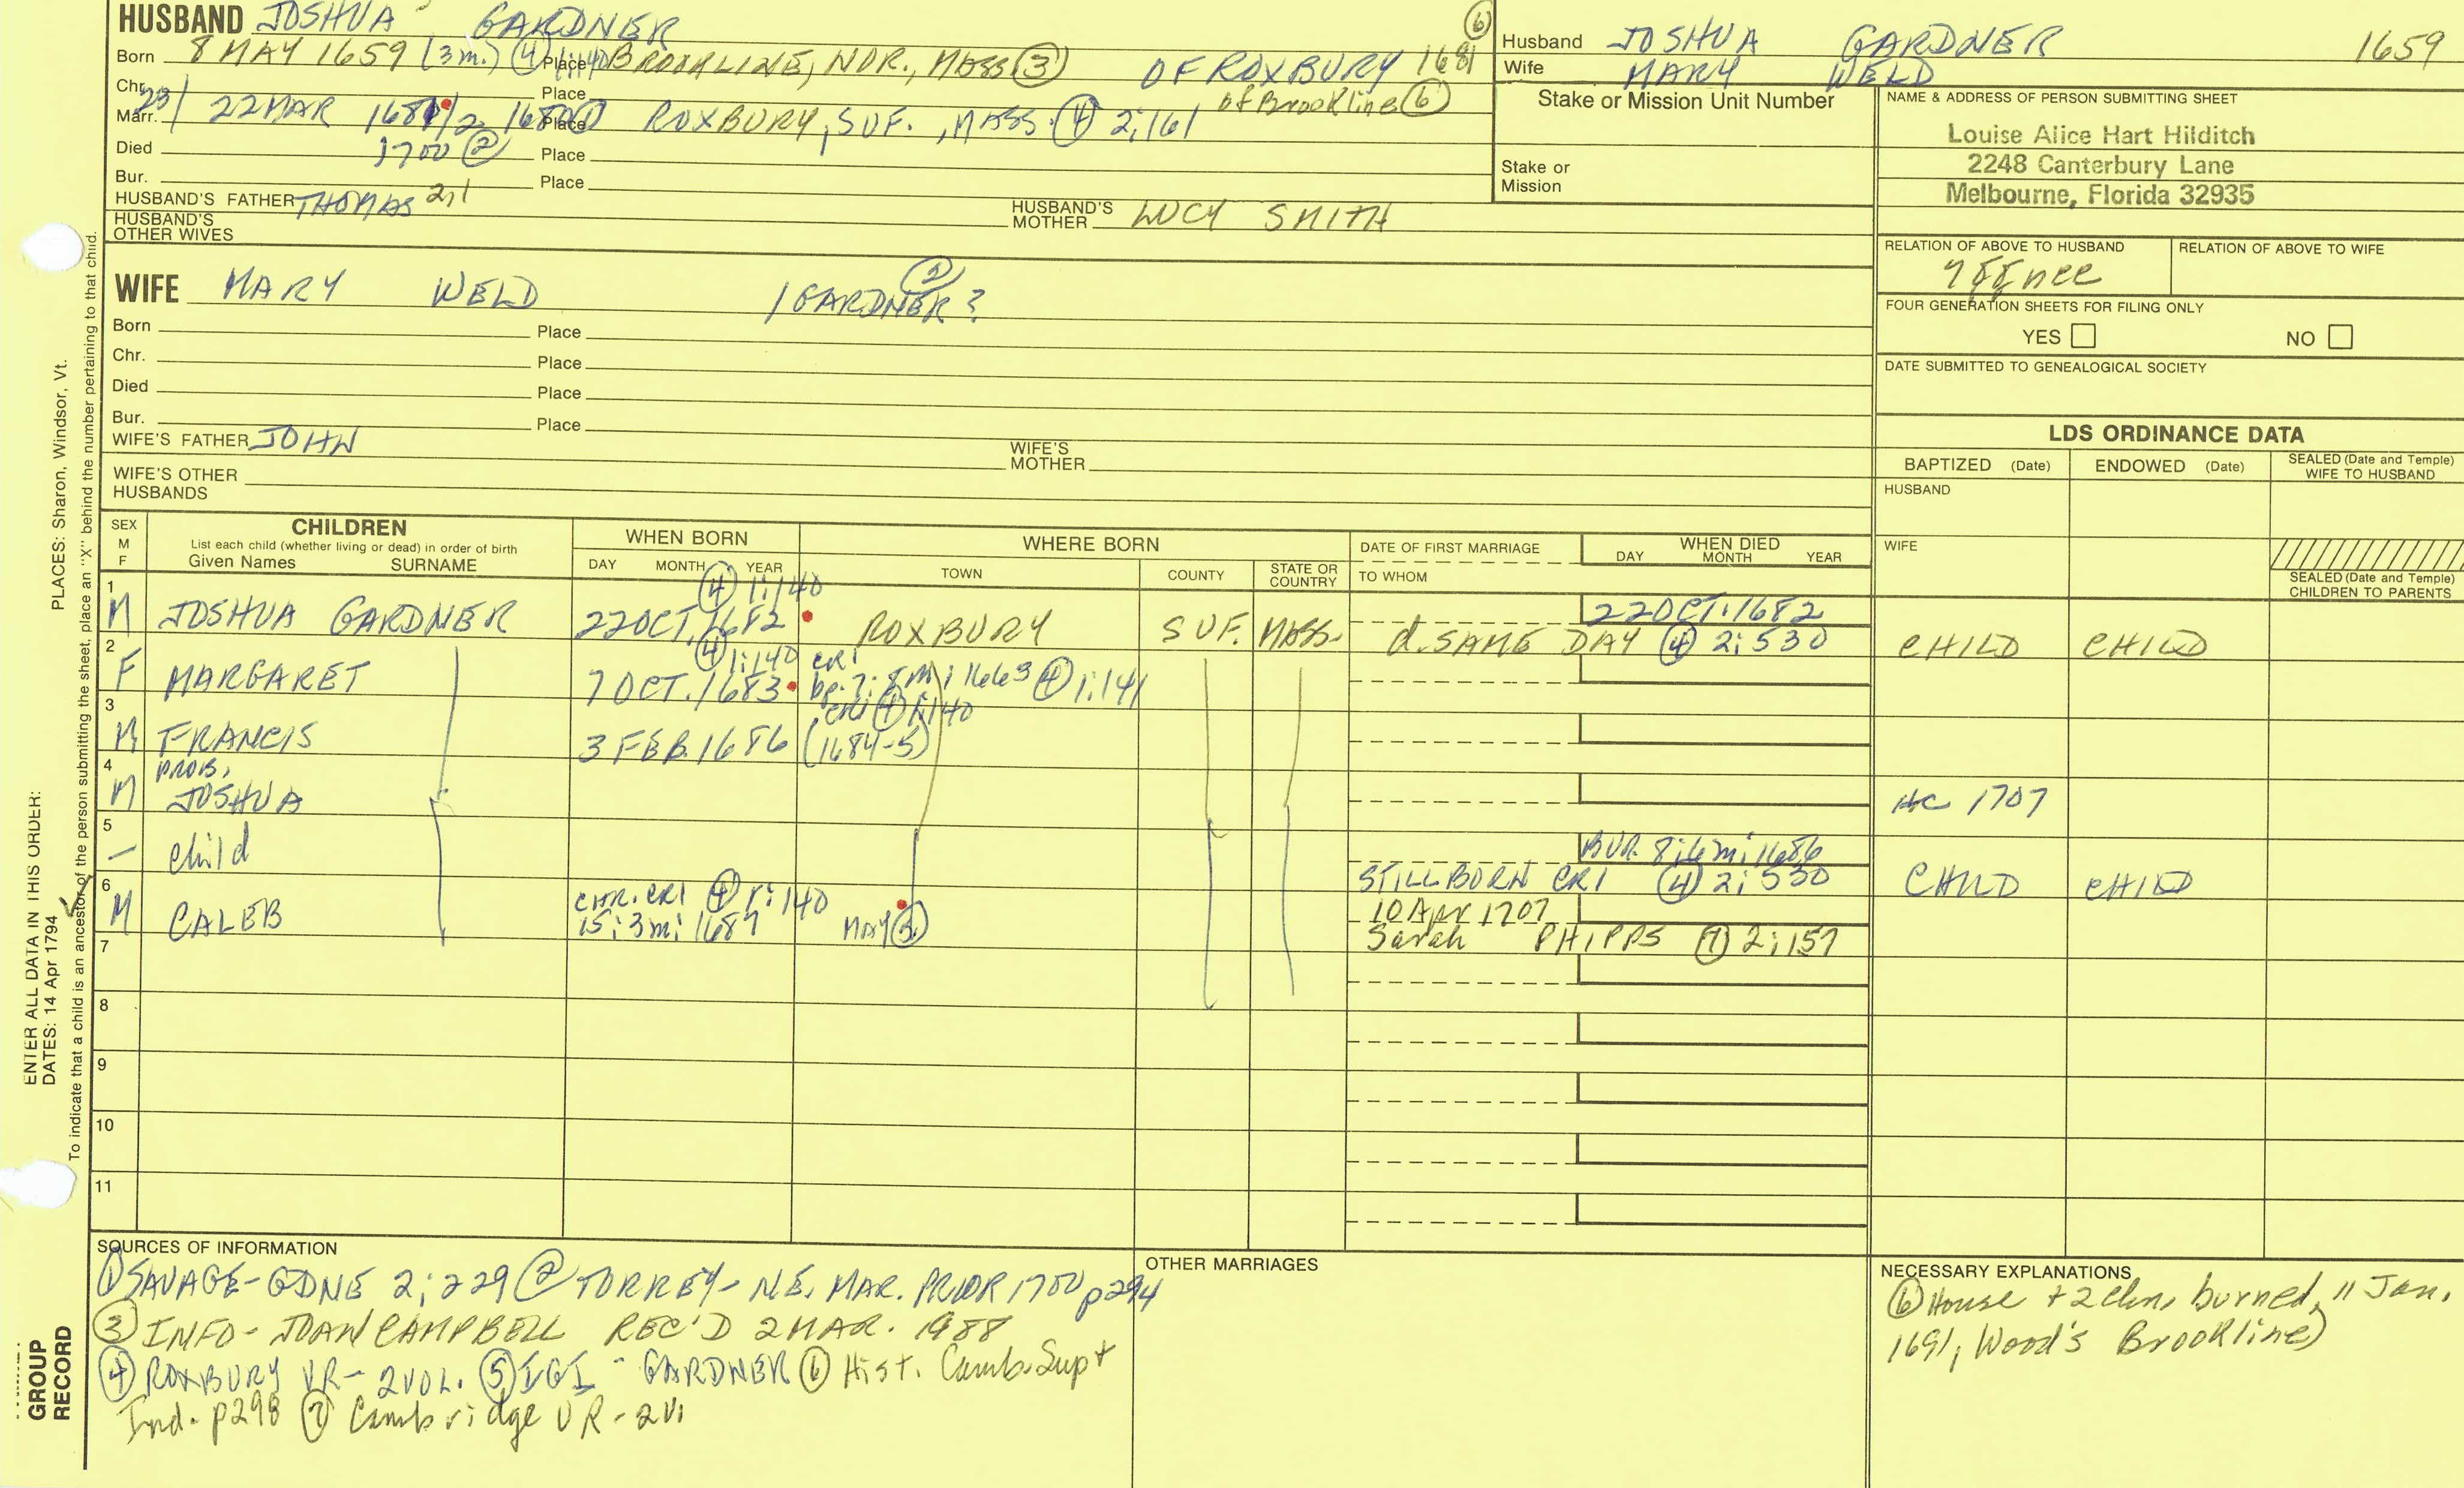 HUSBAND JOSHUA GARDNER
Born 8 MAY 1659 (3m.) (4) 1:140 Place BROOKLINE, NOR., MASS (3) OF ROXBURY 1681 (6)
Chr. Place of Brookline (6)
Marr. 23/ 22 MAR 1681/2 Place ROXBURY, SUF., MASS. (4) 2:161
Died 1700 (2) Place
Bur. Place
HUSBAND'S FATHER THOMAS 2,1 HUSBAND'S MOTHER LUCY SMITH
HUSBAND'S OTHER WIVES
Husband JOSHUA GARDNER 1659
Wife MARY WELD
Stake or Mission Unit Number
Stake or Mission
NAME & ADDRESS OF PERSON SUBMITTING SHEET
Louise Alice Hart Hilditch
2248 Canterbury Lane
Melbourne, Florida 32935
RELATION OF ABOVE TO HUSBAND RELATION OF ABOVE TO WIFE
FOUR GENERATION SHEETS FOR FILING ONLY
YES NO
DATE SUBMITTED TO GENEALOGICAL SOCIETY
WIFE MARY WELD /GARDNER? (2)
Born Place
Chr. Place
Died Place
Bur. Place
WIFE'S FATHER JOHN WIFE'S MOTHER
WIFE'S OTHER HUSBANDS
LDS ORDINANCE DATA
BAPTIZED (Date) ENDOWED (Date) SEALED (Date and Temple) WIFE TO HUSBAND
HUSBAND
WIFE
SEALED (Date and Temple) CHILDREN TO PARENTS
SEX M F
CHILDREN
List each child (whether living or dead) in order of birth
Given Names SURNAME
WHEN BORN
DAY MONTH YEAR
WHERE BORN
TOWN COUNTY STATE OR COUNTRY
DATE OF FIRST MARRIAGE
TO WHOM
WHEN DIED
DAY MONTH YEAR
(4) 1:140
1 M JOSHUA GARDNER 22 OCT. 1682 ROXBURY SUF. MASS. 22 OCT. 1682
d. SAME DAY (4) 2:530 CHILD CHILD
(4) 1:140 CR1
2 F MARGARET 7 OCT. 1683 bp. 7:8m:1663 (4) 1:141
CR1 (4) 1:140
3 M FRANCIS 3 FEB. 1686 (1684-5)
PROB.
4 M JOSHUA HC 1707
5 – child BUR 8:6m:1686
STILLBORN CR1 (4) 2:530 CHILD CHILD
CHR. CR1 (4) 1:140
6 M CALEB 15:3m:1687 MAY (5) 10 Apr 1707
Sarah PHIPPS (7) 2:157
7
8
9
10
11
SOURCES OF INFORMATION
(1) SAVAGE-GDNE 2:229 (2) TORREY- N.E. MAR. PRIOR 1700 p294
(3) INFO- JOAN CAMPBELL REC'D 2 MAR. 1988
(4) ROXBURY VR- 2 VOL. (5) IGI - GARDNER (6) Hist. Camb. Supt
Ind. p298 (7) Cambridge VR-2V.
OTHER MARRIAGES
NECESSARY EXPLANATIONS
(6) House + 2 chn. burned, 11 Jan.
1691, Wood's Brookline)
PLACES: Sharon, Windsor, Vt.
ENTER ALL DATA IN THIS ORDER:
DATES: 14 Apr 1794
To indicate that a child is an ancestor of the person submitting the sheet, place an "X" behind the number pertaining to that child.
GROUP
RECORD